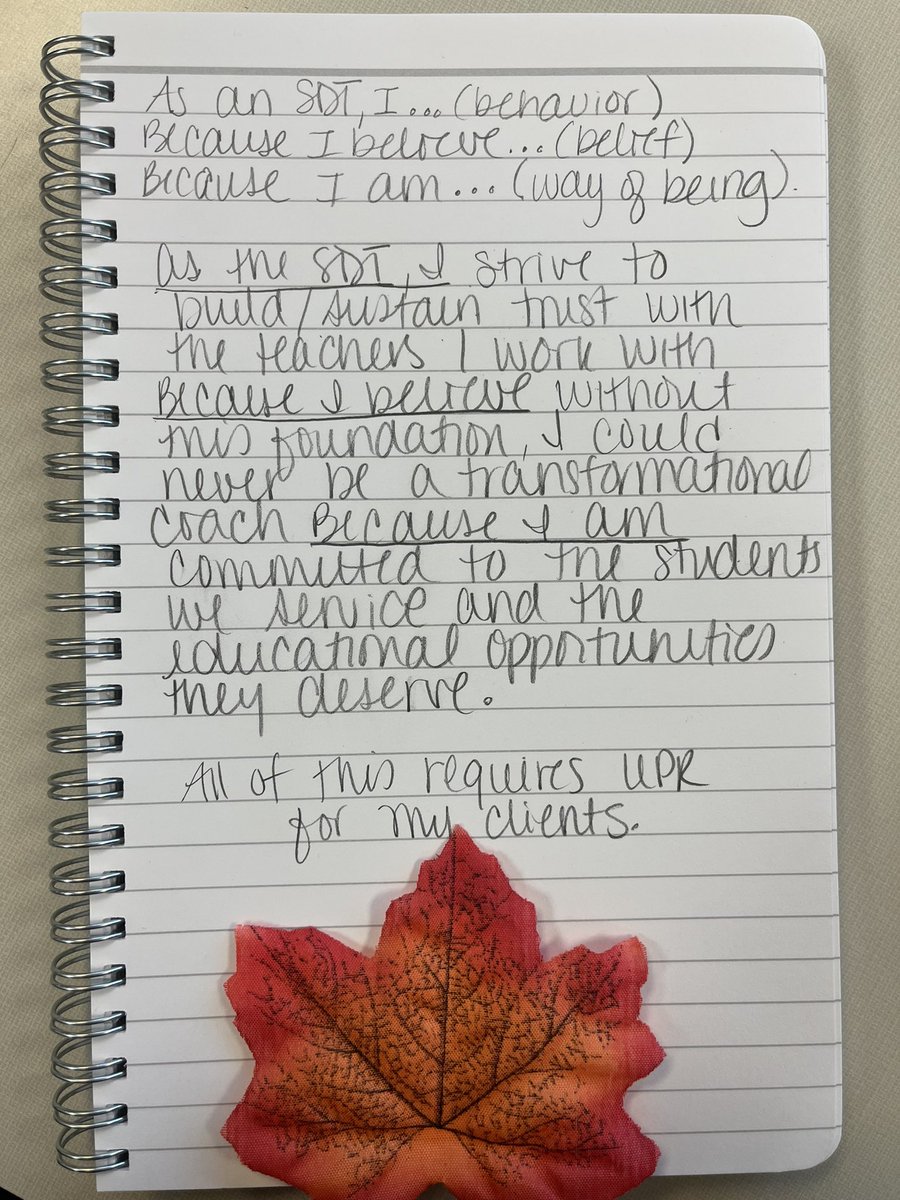 As an SDT, I... (behavior)
Because I believe... (belief)
Because I am... (way of being).
As the SDT, I strive to
build/sustain trust with
the teachers I work with
Because I believe without
this foundation, I could
never be a transformational
coach Because I am
committed to the students
we service and the
educational opportunities
they deserve.
All of this requires UPR
for my clients.